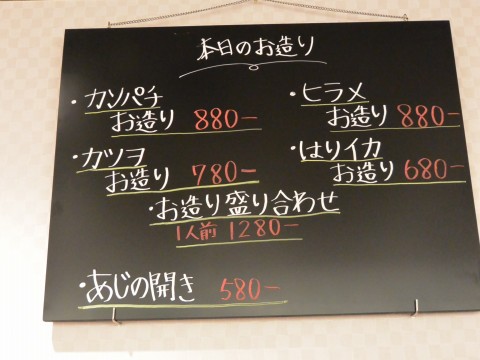 本日のお造り
・カンパチ
お造り 880-
・ヒラメ
お造り 880-
・カツヲ
お造り 780-
・はりイカ
お造り 680-
・お造り盛り合わせ
1人前 1280-
・あじの開き 580-